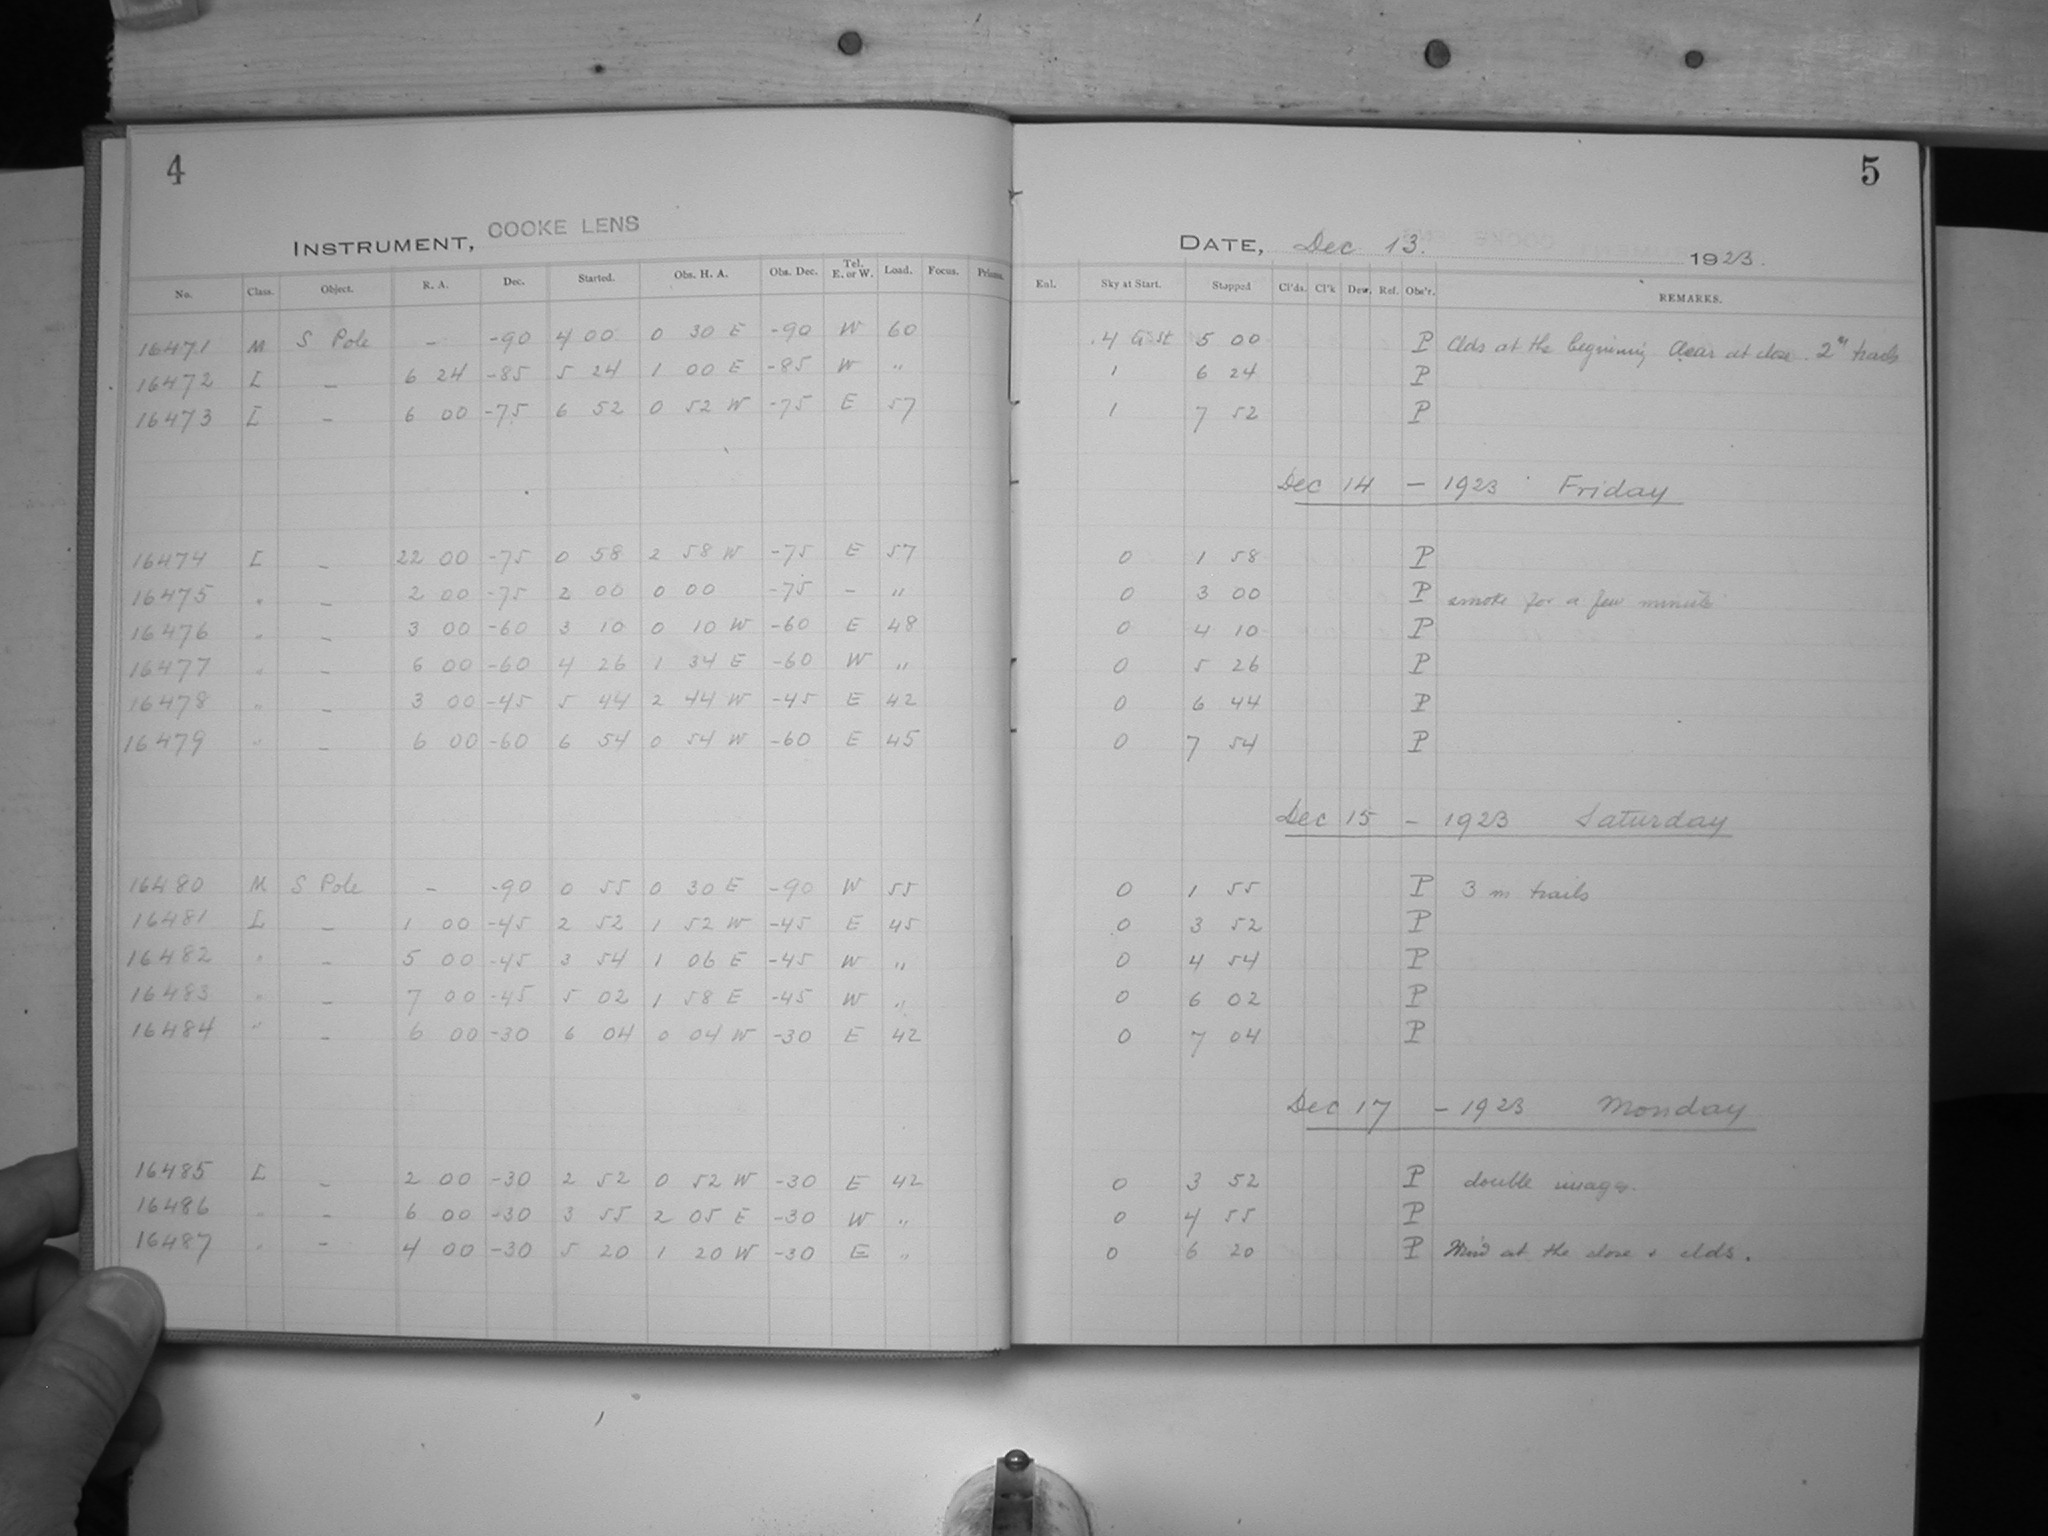 4
INSTRUMENT, COOKE LENS
No. Class. Object. R. A. Dec. Started. Obs. H. A. Obs. Dec. Tel. E. or W. Load. Focus. Prisms.
16471 M S Pole - -90 4 00 0 30 E -90 W 60
16472 L - 6 24 -85 5 24 1 00 E -85 W "
16473 L - 6 00 -75 6 52 0 52 W -75 E 57
16474 L - 22 00 -75 0 58 2 58 W -75 E 57
16475 " - 2 00 -75 2 00 0 00 -75 - "
16476 " - 3 00 -60 3 10 0 10 W -60 E 48
16477 " - 6 00 -60 4 26 1 34 E -60 W "
16478 " - 3 00 -45 5 44 2 44 W -45 E 42
16479 " - 6 00 -60 6 54 0 54 W -60 E 45
16480 M S Pole - -90 0 55 0 30 E -90 W 55
16481 L - 1 00 -45 2 52 1 52 W -45 E 45
16482 " - 5 00 -45 3 54 1 06 E -45 W "
16483 " - 7 00 -45 5 02 1 58 E -45 W "
16484 " - 6 00 -30 6 04 0 04 W -30 E 42
16485 L - 2 00 -30 2 52 0 52 W -30 E 42
16486 " - 6 00 -30 3 55 2 05 E -30 W "
16487 " - 4 00 -30 5 20 1 20 W -30 E "
5
DATE, Dec 13. 1923.
Enl. Sky at Start. Stopped Cl'ds. Cl'k Dew. Ref. Obs'r. REMARKS.
.4 5 00 P Clds at the beginning Clear at close. 2m trails
1 6 24 P
1 7 52 P
Dec 14 - 1923 Friday
0 1 58 P
0 3 00 P smoke for a few minute
0 4 10 P
0 5 26 P
0 6 44 P
0 7 54 P
Dec 15 - 1923 Saturday
0 1 55 P 3 m trails
0 3 52 P
0 4 54 P
0 6 02 P
0 7 04 P
Dec 17 - 1923 Monday
0 3 52 P double images.
0 4 55 P
0 6 20 P Wind at the close & clds.